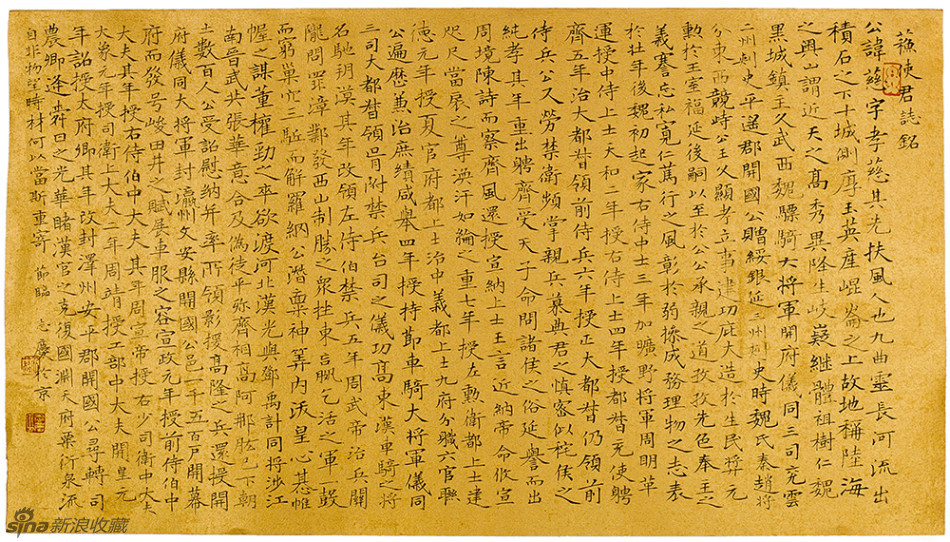 蘇使君誌銘
公諱慈字孝慈其先扶風人也九曲靈長河流出
積石之下十城側厚玉英産崐崙之上故地稱陸海
之奥山謂近天之高秀異降生岐嶷継體祖樹仁魏
黑城鎮主父武西魏驃騎大將軍開府儀同三司兗雲
二州刺史平遥郡開國公贈綏銀延三州刺史時魏氏秦趙將
分東西競峙公王父顯考立事建功庇大造於生民奬元
勳於王室福延後嗣以至於公公承親之道孜孜先色奉主之
義謇忘私寬仁篤行之風彰於弱操成務理物之志表
於壯年後魏初起家右侍中士三年加曠野將軍周明革
運授中侍上士天和二年授右侍上士四年授都督充使聘
齊五年治大都督領前侍兵六年授正大都督仍領前
侍兵公久勞禁衛頻掌親兵慕典君之慎密似秺侯之
純孝其年重出聘齊受天子命問諸侯之俗延譽而出
周境陳詩而察齊風還授宣納上士王言近納帝命攸宣
咫尺當扆之尊渙汗如綸之重七年授左勳衛都上士建
徳元年授夏官府都上士治中義都上士九府分職六官聯
公遍歷兼治庶績咸舉四年授持節車騎大將軍儀同
三司大都督領胥附禁兵台司之儀功高東漢車騎之將
名馳朔漠其年改領左侍伯禁兵五年周武帝治兵關
隴問罪漳鄴發西山制勝之衆挫東乞活之軍一鼓
而窮巢穴三駈而解羅納公潛稟神筭内沃皇心甚帷
幄之謀董權勁之卒欲渡河北漢光與鄧禹計同將涉江
南晉武共張華意合及偽徒平殄齊相高阿那肱已下朝
士數百人公受詔慰納并率所領影援高隆之兵還授開
府儀同大將軍封瀛州文安縣開國公邑一千五百戶開幕
府而發号峻田井之賦展車服之容宣政元年授前侍伯中
大夫其年授右侍伯中大夫其年周宣帝授右少司衛中大夫
大象元年授司衛上大夫二年周靖授工部中大夫開皇元
年詔授太府卿其年改封澤州安平郡開國公尋轉司
農卿逢舜日之光華睹漢官之克復國淵天府粟衍泉流
自非物望時材何以當斯重寄 節臨 志慶於京
sina新浪收藏